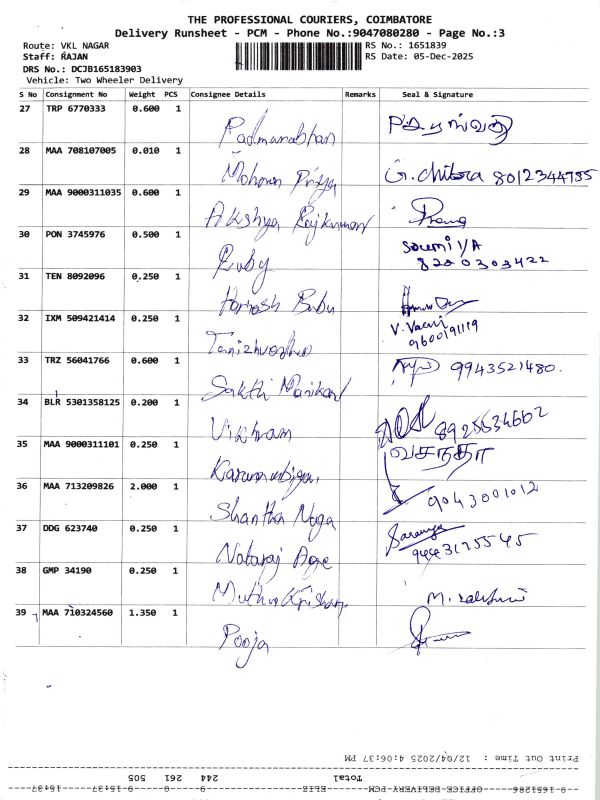 THE PROFESSIONAL COURIERS, COIMBATORE
Delivery Runsheet - PCM - Phone No.:9047080280 - Page No.:3
Route: VKL NAGAR RS No.: 1651839
Staff: RAJAN RS Date: 05-Dec-2025
DRS No.: DCJB165183903
Vehicle: Two Wheeler Delivery
S No Consignment No Weight PCS Consignee Details Remarks Seal & Signature
27 TRP 6770333 0.600 1 Padmanabhan
28 MAA 708107005 0.010 1 Mohana Priya G. Chitra 8012344785
29 MAA 9000311035 0.600 1 Akshya Rajkumar
30 PON 3745976 0.500 1 Ruby 8220303422
31 TEN 8092096 0.250 1 Harnesh Babu
32 IXM 509421414 0.250 1 V. Vaani 9600191119
33 TRZ 56041766 0.600 1 Sakthi Manikand 9943521480.
34 BLR 5301358125 0.200 1 Vikhram 8925534602
35 MAA 9000311101 0.250 1 வசந்தா
36 MAA 713209826 2.000 1 Shantha Naga 9043001012
37 DDG 623740 0.250 1 Nataraj Age Saranya 9443125545
38 GMP 34190 0.250 1 Muthu Krishnan
39 MAA 710324560 1.350 1 Pooja
Print Out Time : 12/04/2025 4:06:37 PM
Total 244 261 505